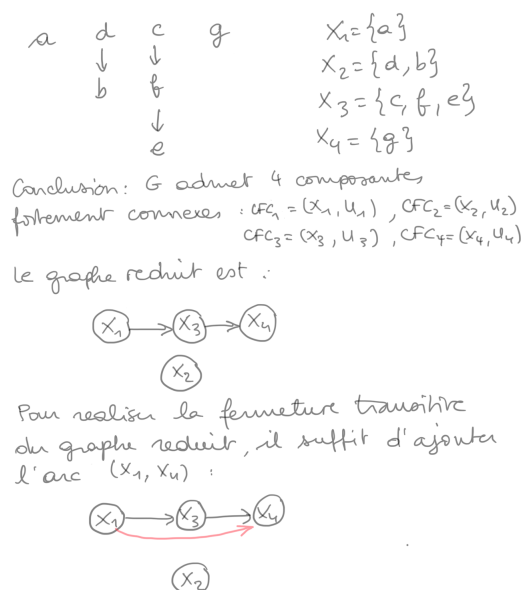 a d c g
X₁={a}
b f
X₂={d,b}
X₃={c,f,e}
e
X₄={g}
Conclusion: G admet 4 composantes
fortement connexes : CFC₁=(X₁,U₁) , CFC₂=(X₂,U₂)
CFC₃=(X₃,U₃) , CFC₄=(X₄,U₄)
Le graphe reduit est :
X₁ X₃ X₄
X₂
Pour realiser la fermeture transitive
du graphe reduit, il suffit d'ajouter
l'arc (X₁,X₄) :
X₁ X₃ X₄
X₂